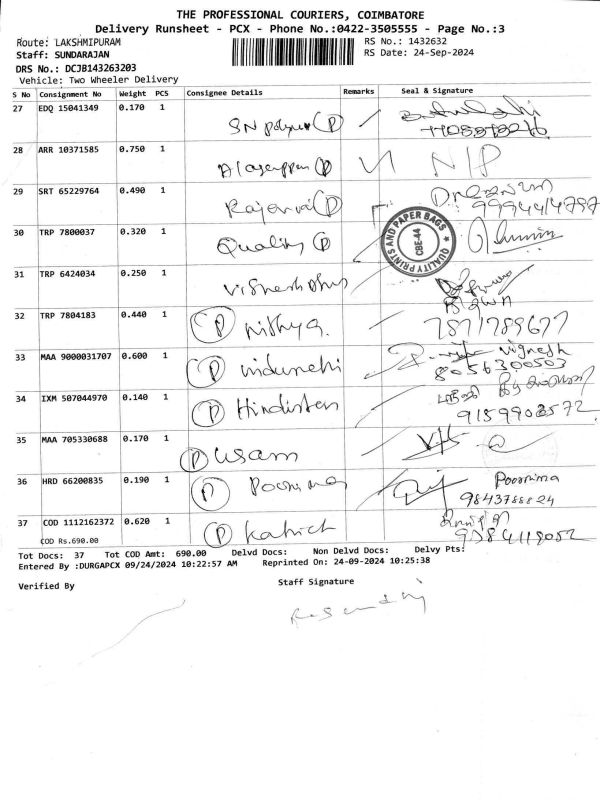 THE PROFESSIONAL COURIERS, COIMBATORE
Delivery Runsheet - PCX - Phone No.:0422-3505555 - Page No.:3
Route: LAKSHMIPURAM
RS No.: 1432632
Staff: SUNDARAJAN
RS Date: 24-Sep-2024
DRS No.: DCJB143263203
Vehicle: Two Wheeler Delivery
S No Consignment No Weight PCS Consignee Details Remarks Seal & Signature
27 EDQ 15041349 0.170 1
SN polymer (P)
28 ARR 10371585 0.750 1
(P) N/P
29 SRT 65229764 0.490 1
(P)
30 TRP 7800037 0.320 1
Quality (P)
QUALITY PRINTS AND PAPER BAGS
CBE-44
31 TRP 6424034 0.250 1
32 TRP 7804183 0.440 1
(P) Nithya
33 MAA 9000031707 0.600 1
(P) Vignesh
8056300503
34 IXM 507044970 0.140 1
(P)
35 MAA 705330688 0.170 1
(P) usam
36 HRD 66200835 0.190 1
(P) Poornima Poornima
9843788824
37 COD 1112162372 0.620 1
COD Rs.690.00
(P)
Tot Docs: 37 Tot COD Amt: 690.00 Delvd Docs: Non Delvd Docs: Delvy Pts:
Entered By :DURGAPCX 09/24/2024 10:22:57 AM Reprinted On: 24-09-2024 10:25:38
Verified By
Staff Signature